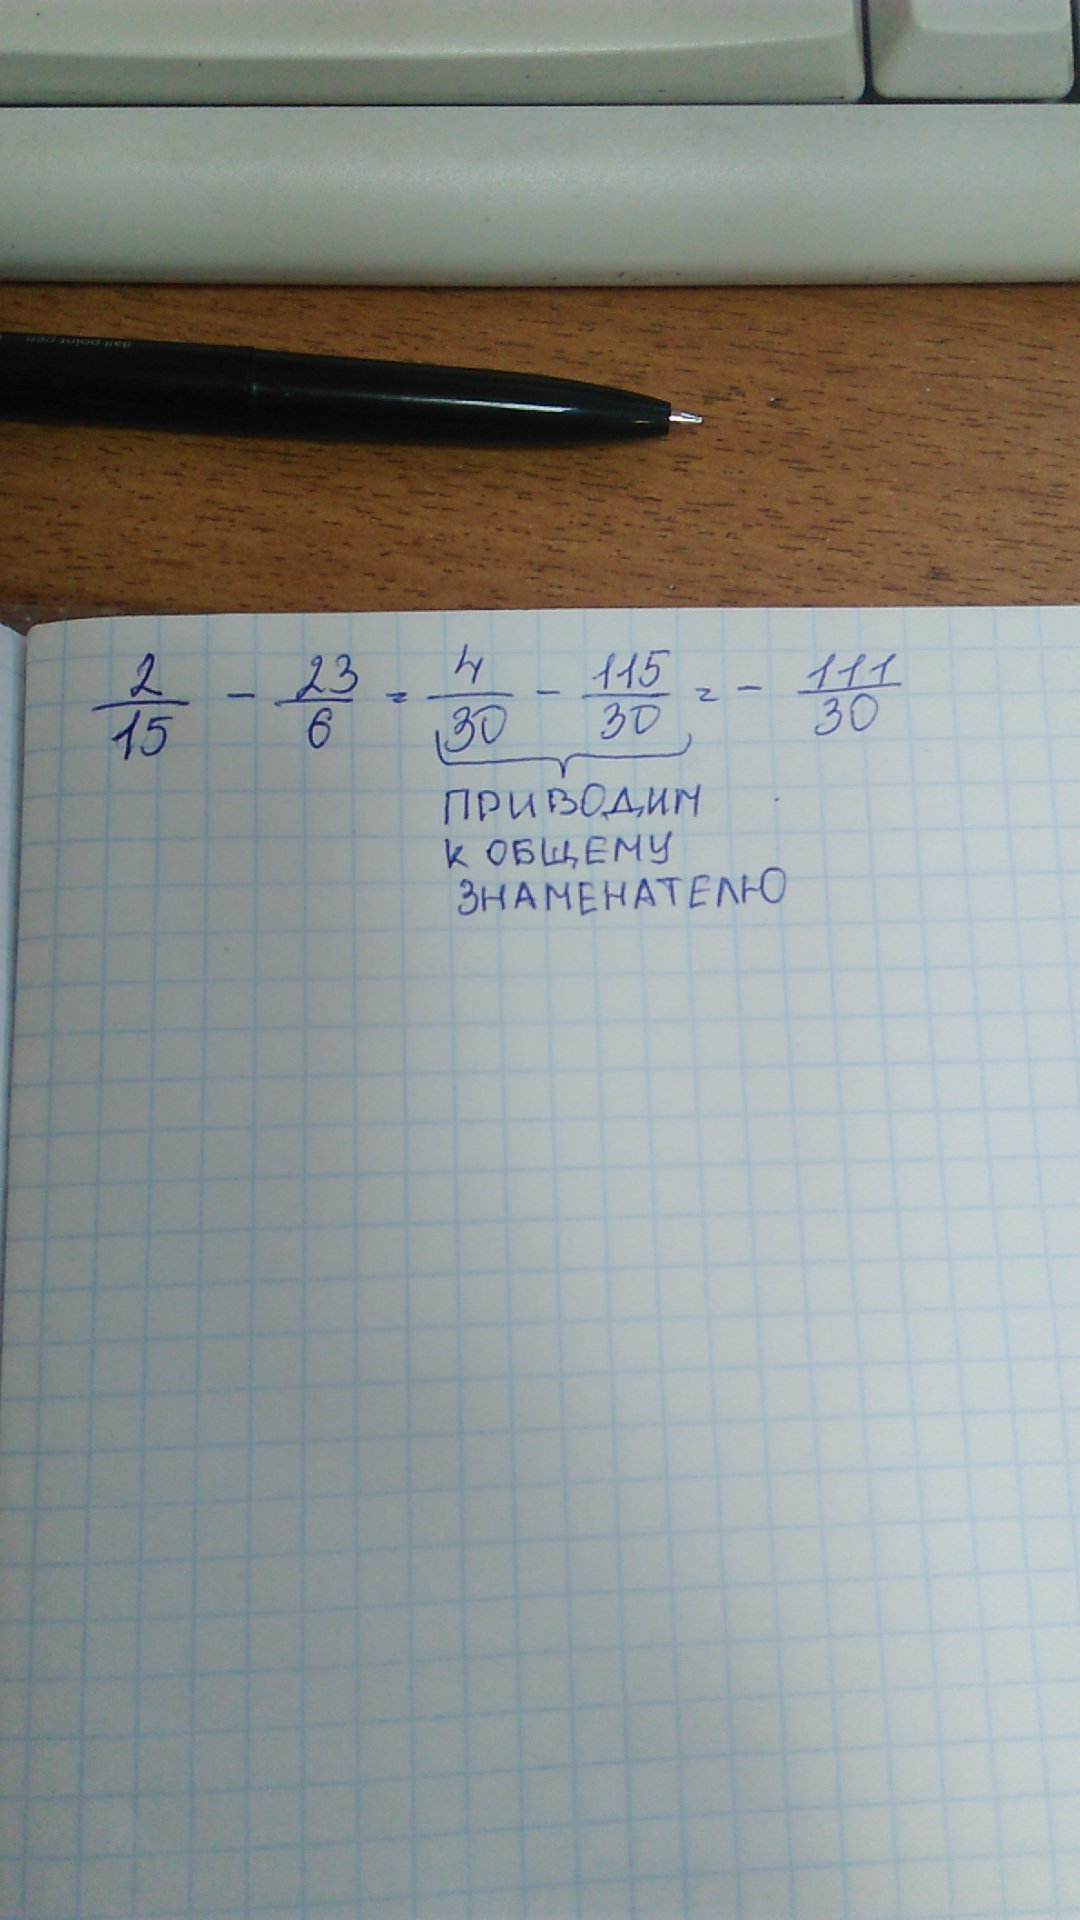 Ball point pen
2/15 - 23/6 = 4/30 - 115/30 = - 111/30
ПРИВОДИМ
К ОБЩЕМУ
ЗНАМЕНАТЕЛЮ